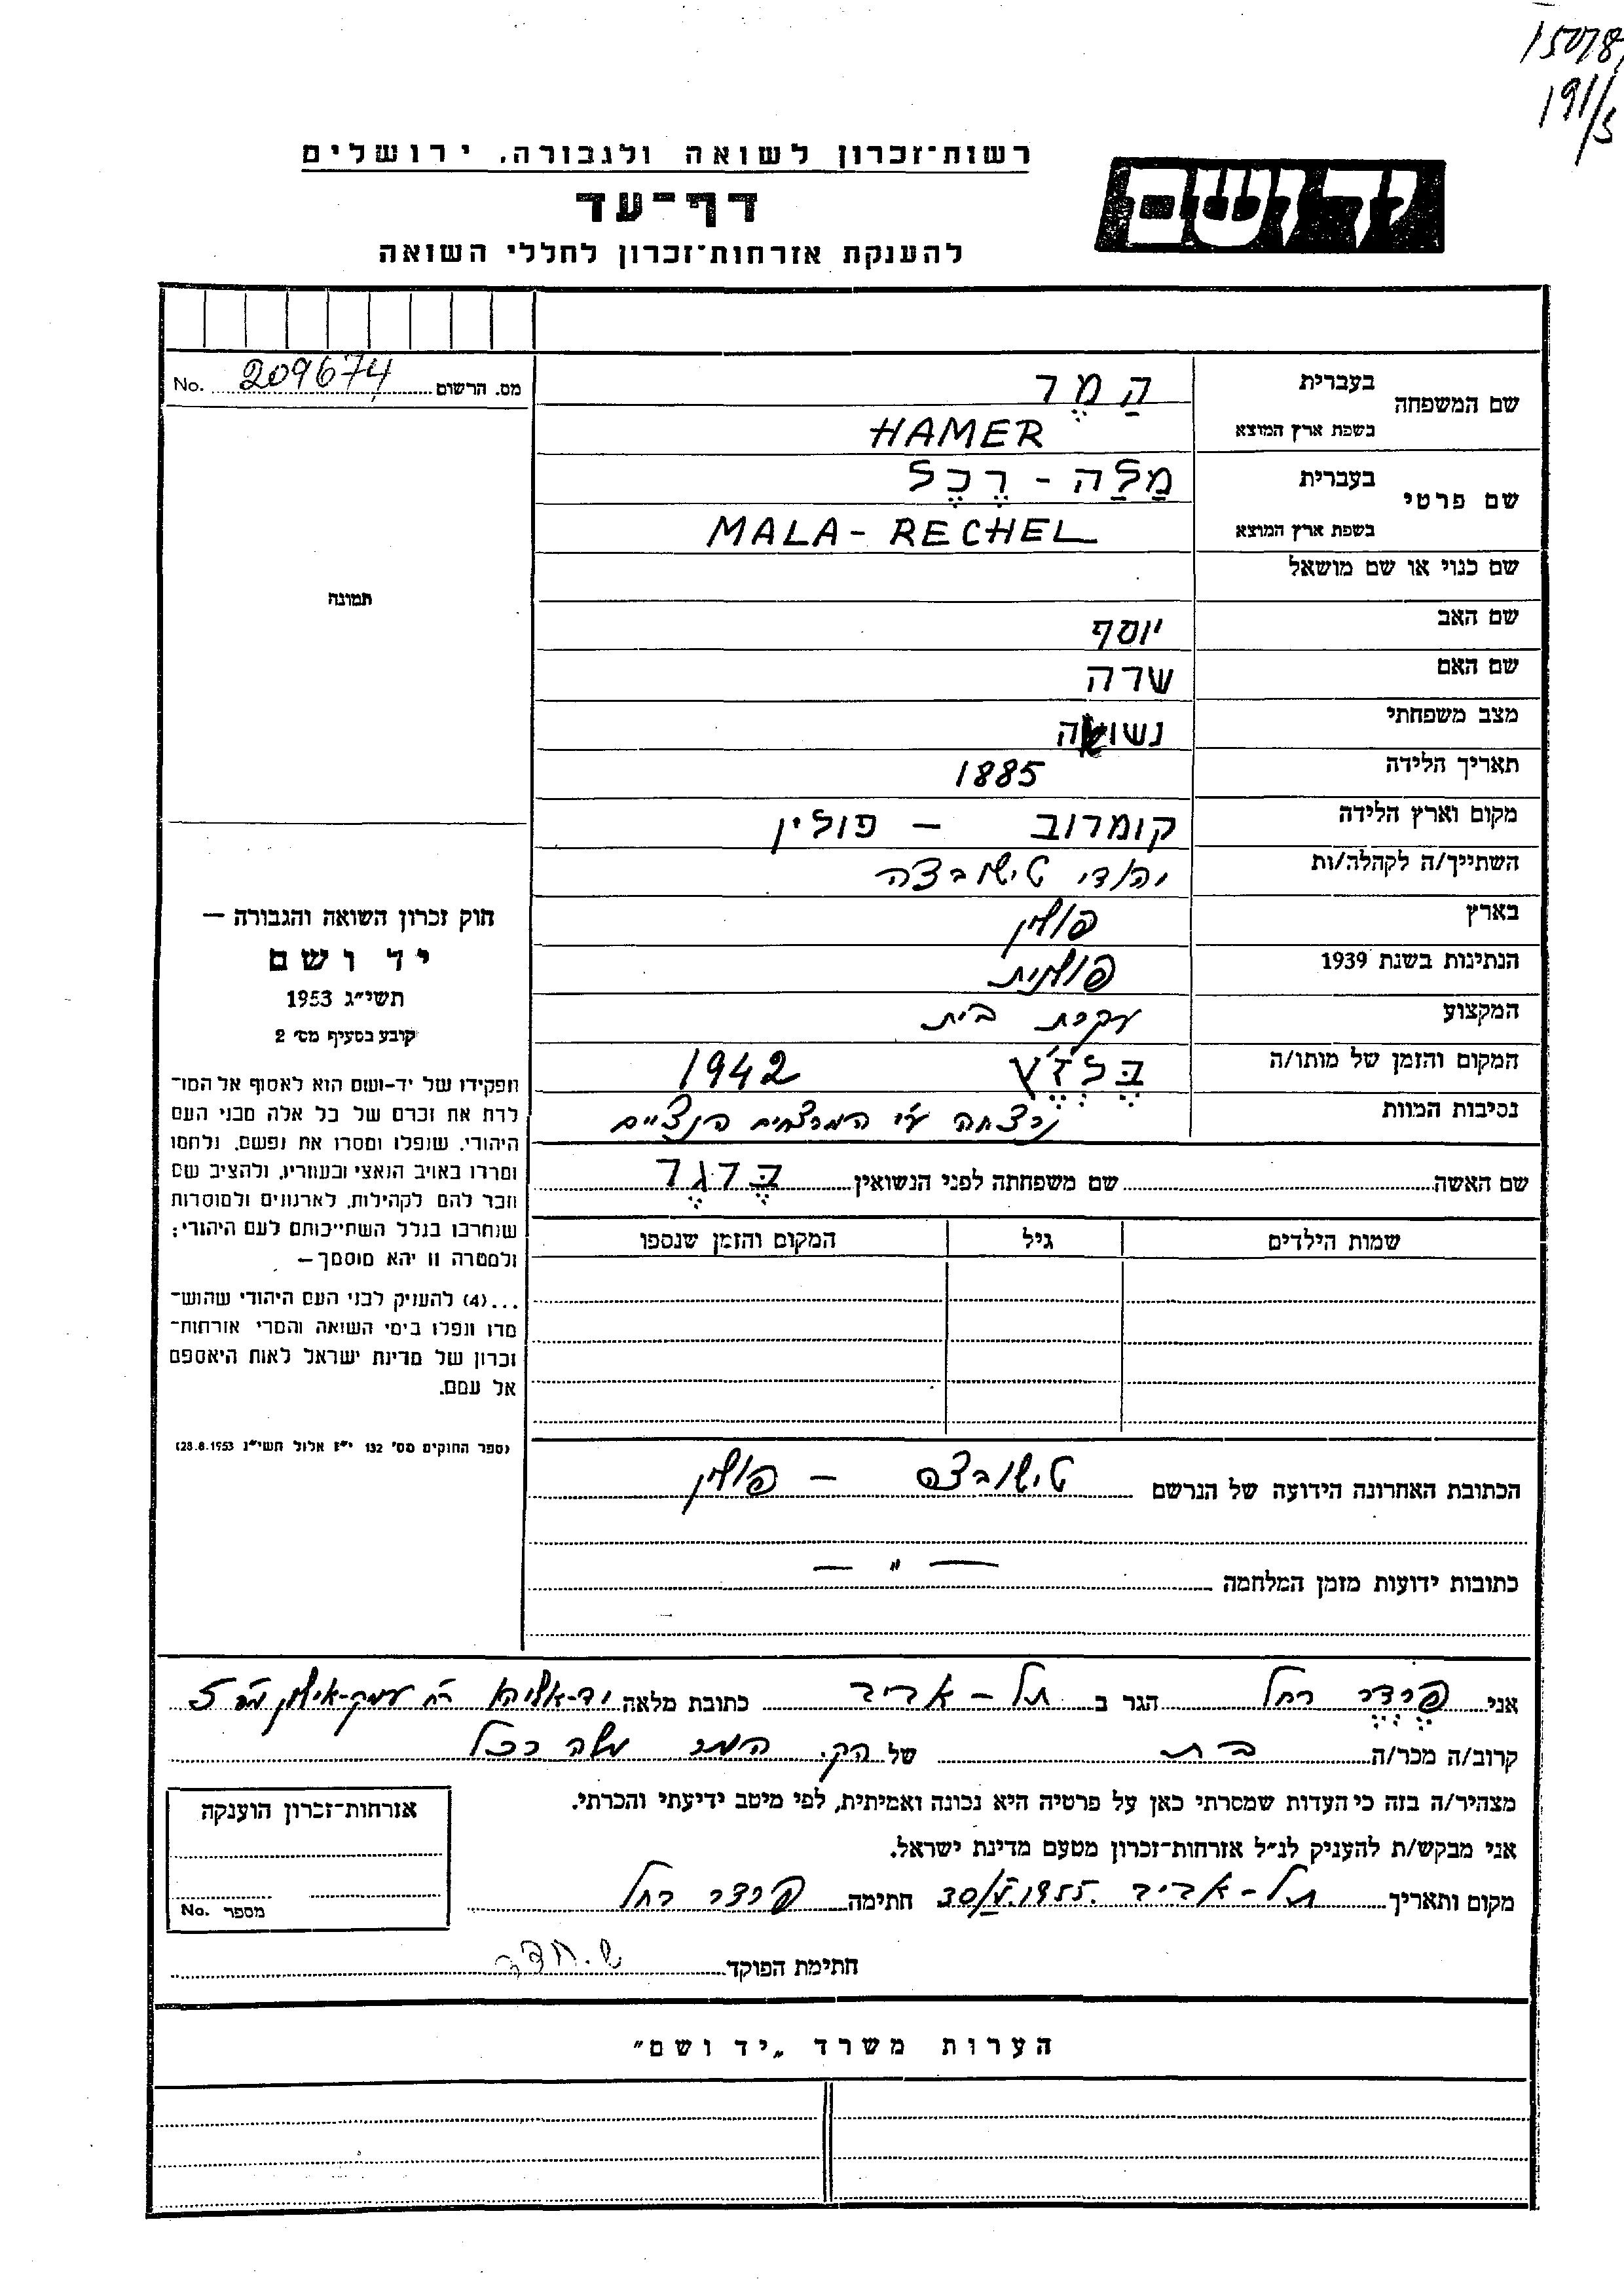 15078
191/5
רשות־זכרון לשואה ולגבורה, ירושלים
יד ושם
דף־עד
להענקת אזרחות־זכרון לחללי השואה
מס. הרשום 209674 No.
שם המשפחה
בעברית הַמֶר
בשפת ארץ המוצא HAMER
שם פרטי
בעברית מַלַה - רֶכֶל
בשפת ארץ המוצא MALA - RECHEL
שם כנוי או שם מושאל
שם האב יוסף
שם האם שרה
מצב משפחתי נשואה
תאריך הלידה 1885
מקום וארץ הלידה קומרוב – פולין
השתייך/ה לקהלה/ות יהודי טישובצה
בארץ פולין
הנתינות בשנת 1939 פולנית
המקצוע עקרת בית
המקום והזמן של מותו/ה בֶּלְזֶ'ץ 1942
נסיבות המוות נרצחה ע"י המרצחים הנצייים
שם האשה שם משפחתה לפני הנשואין בֶּרגֶר
שמות הילדים גיל המקום והזמן שנספו
תמונה
חוק זכרון השואה והגבורה —
יד ושם
תשי"ג 1953
קובע בסעיף מס' 2
תפקידו של יד-ושם הוא לאסוף אל המו־
לדת את זכרם של כל אלה מבני העם
היהודי, שנפלו ומסרו את נפשם, נלחמו
ומרדו באויב הנאצי ובעוזריו, ולהציב שם
וזכר להם לקהילות, לארגונים ולמוסדות
שנחרבו בגלל השתייכותם לעם היהודי;
ולמטרה זו יהא מוסמך —
...(4) להעניק לבני העם היהודי שהוש־
מדו ונפלו בימי השואה והמרי אזרחות־
זכרון של מדינת ישראל לאות היאספם
אל עמם.
(ספר החוקים מס' 132 י"ז אלול תשי"ג 28.8.1953)
הכתובת האחרונה הידועה של הנרשם טישובצה – פולין
כתובות ידועות מזמן המלחמה — " —
אני פֶרֶדֶר רחל הגר ב תל - אביב כתובת מלאה יד-אליהו רח' עמק-אילון מס' 5
קרוב/ה מכר/ה בת של הק. המר מלה רכל
מצהיר/ה בזה כי העדות שמסרתי כאן על פרטיה היא נכונה ואמיתית, לפי מיטב ידיעתי והכרתי.
אני מבקש/ת להעניק לנ"ל אזרחות־זכרון מטעם מדינת ישראל.
מקום ותאריך תל - אביב 30/V.1955 חתימה פרדר רחל
חתימת הפוקד
אזרחות־זכרון הוענקה
מספר No.
הערות משרד „יד ושם"